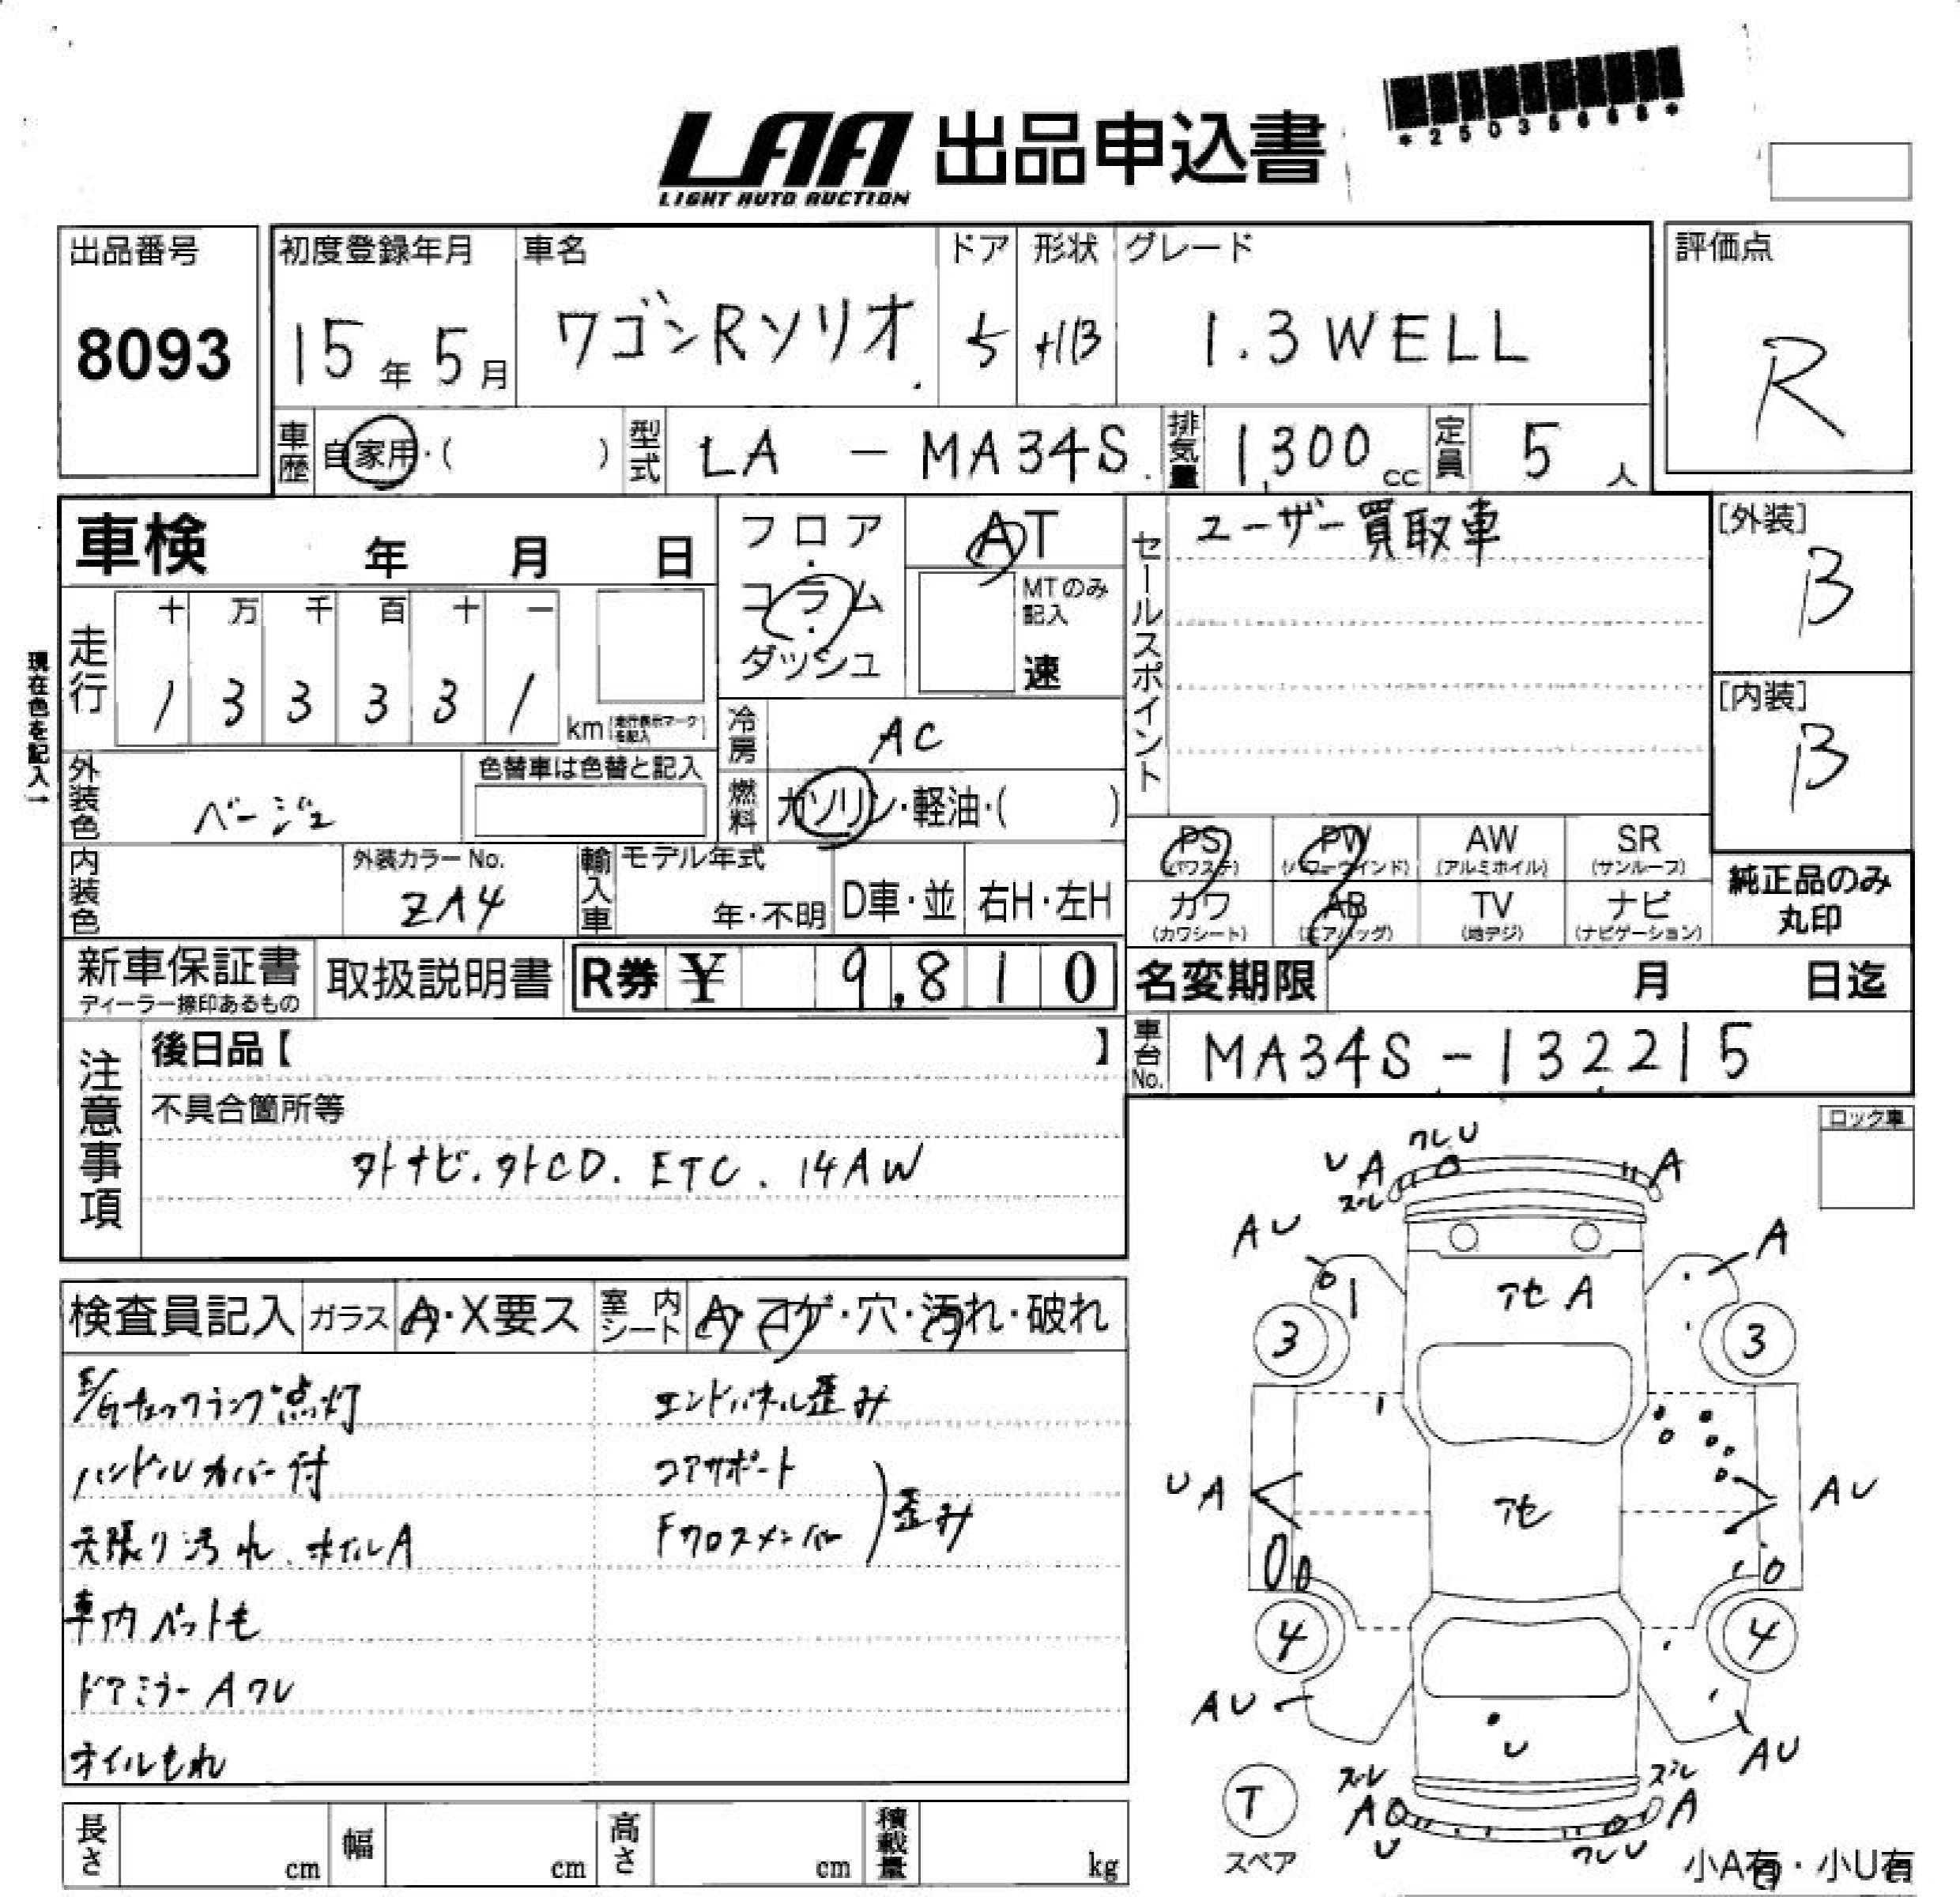 *25035666*
LAA 出品申込書
LIGHT AUTO AUCTION
出品番号
8093
初度登録年月
15年5月
車名
ワゴンRソリオ
ドア
5
形状
HB
グレード
1.3 WELL
評価点
R
車歴 自家用・( )
型式 LA - MA34S
排気量 1,300 cc
定員 5 人
車検 年 月 日
走行
十 万 千 百 十 一
1 3 3 3 3 1 km
走行表示マークを記入
現在色を記入→
外装色 ベージュ
色替車は色替と記入
内装色
外装カラーNo.
ZA4
フロア・コラム・ダッシュ
AT
MTのみ記入
速
冷房 AC
燃料 ガソリン・軽油・( )
輸入車
モデル年式
年・不明
D車・並
右H・左H
セールスポイント
ユーザー買取車
[外装]
B
[内装]
B
PS (パワステ)
PW (パワーウインド)
AW (アルミホイル)
SR (サンルーフ)
カワ (カワシート)
AB (エアバッグ)
TV (地デジ)
ナビ (ナビゲーション)
純正品のみ丸印
新車保証書
ディーラー捺印あるもの
取扱説明書
R券 ¥ 9,810
名変期限 月 日迄
車台No. MA34S-132215
注意事項
後日品【 】
不具合箇所等
外ナビ. 外CD. ETC. 14AW
ロック車
検査員記入
ガラス A・X要ス
室内シート A・コゲ・穴・汚れ・破れ
E/Gチェックランプ点灯
ハンドルカバー付
天張り汚れ、ホイルA
車内ペットも
ドアミラーAワレ
オイルもれ
エンドパネル歪み
コアサポート
Fクロスメンバー
歪み
ワレU
U A
ズレ
A
AU
A
アセ A
3
3
UA
アセ
AU
4
4
AU
U
AU
ズレ
ズレ
A
A
U
ワレU
T
スペア
小A有・小U有
長さ cm
幅 cm
高さ cm
積載量 kg